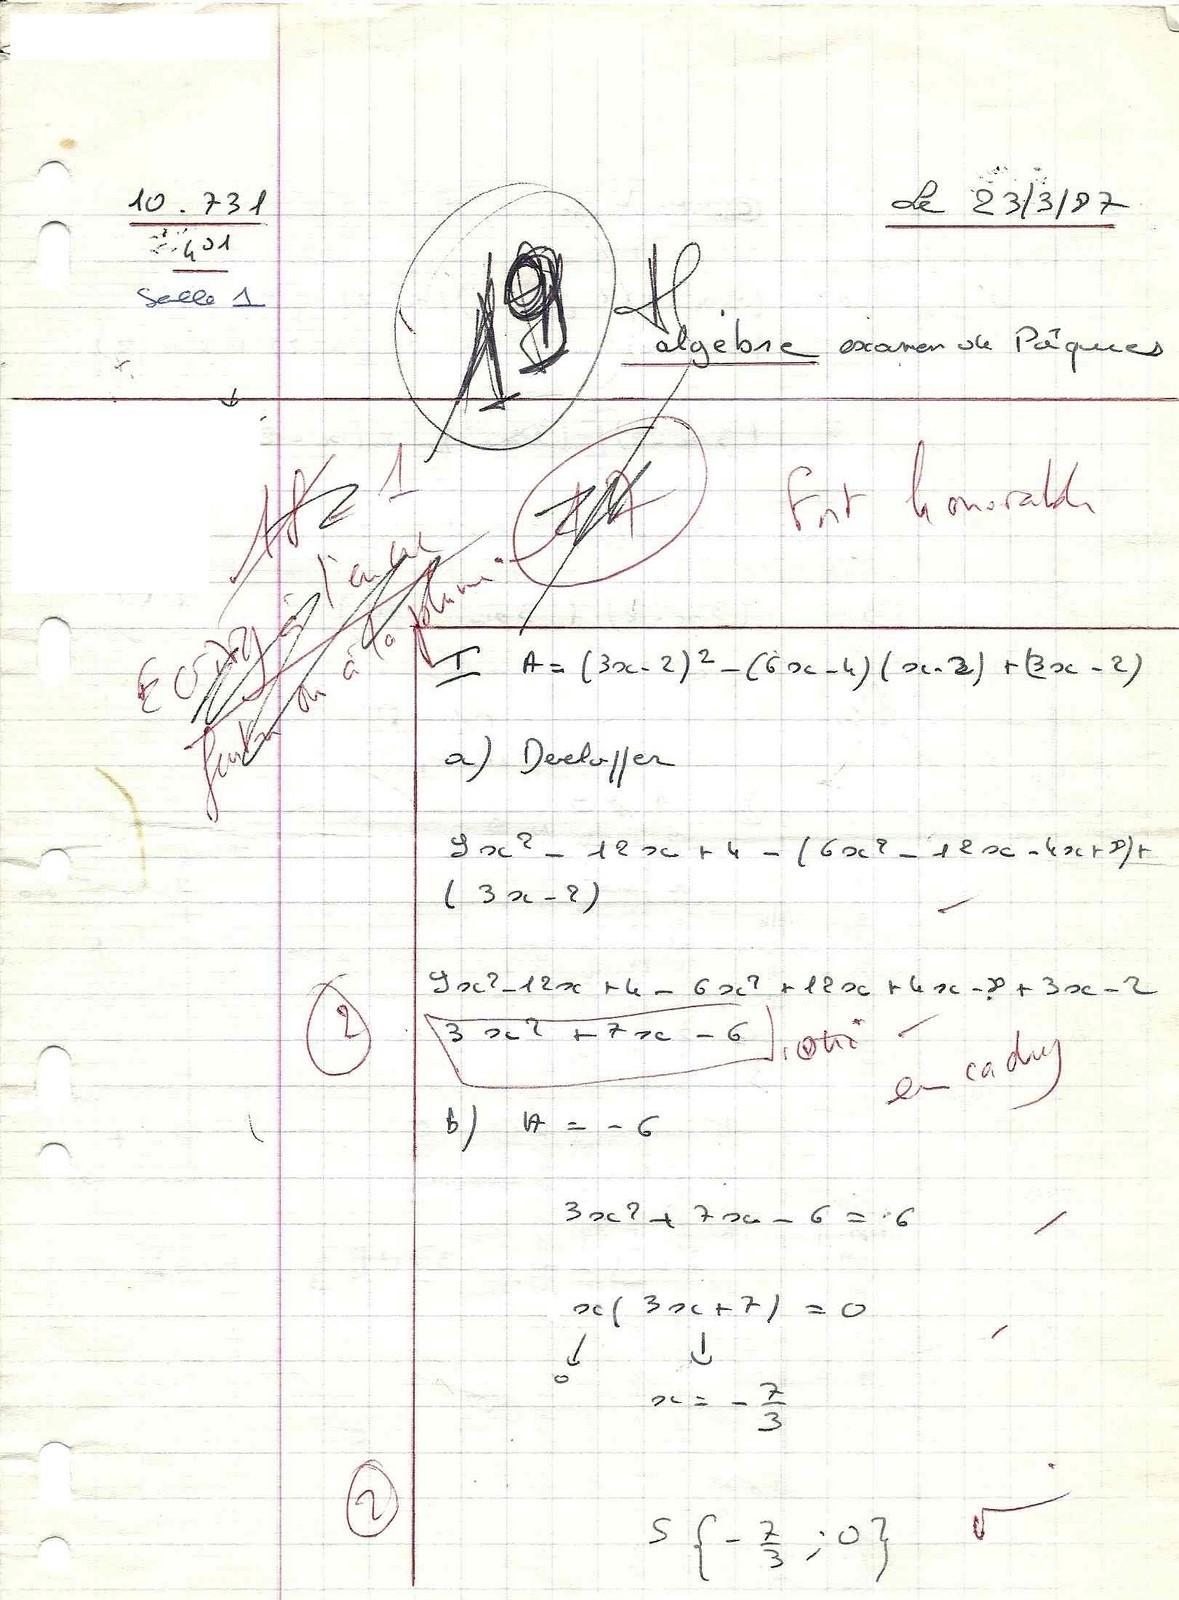 10.731
Le 23/3/87
401
Salle 1
19
algèbre examen de Pâques
1
Fort honorable
Ecrivez à l'encre
ou à la plume.
I A = (3x-2)² - (6x-4)(x-2) + (3x-2)
a) Developper
9x² - 12x + 4 - (6x² - 12x - 4x + 8) +
(3x - 2)
9x² - 12x + 4 - 6x² + 12x + 4x - 8 + 3x - 2
2
3x² + 7x - 6
encadrez
b) A = - 6
3x² + 7x - 6 = -6
x(3x+7) = 0
↙ ↓
0
x = - 7/3
2
S {- 7/3 ; 0}